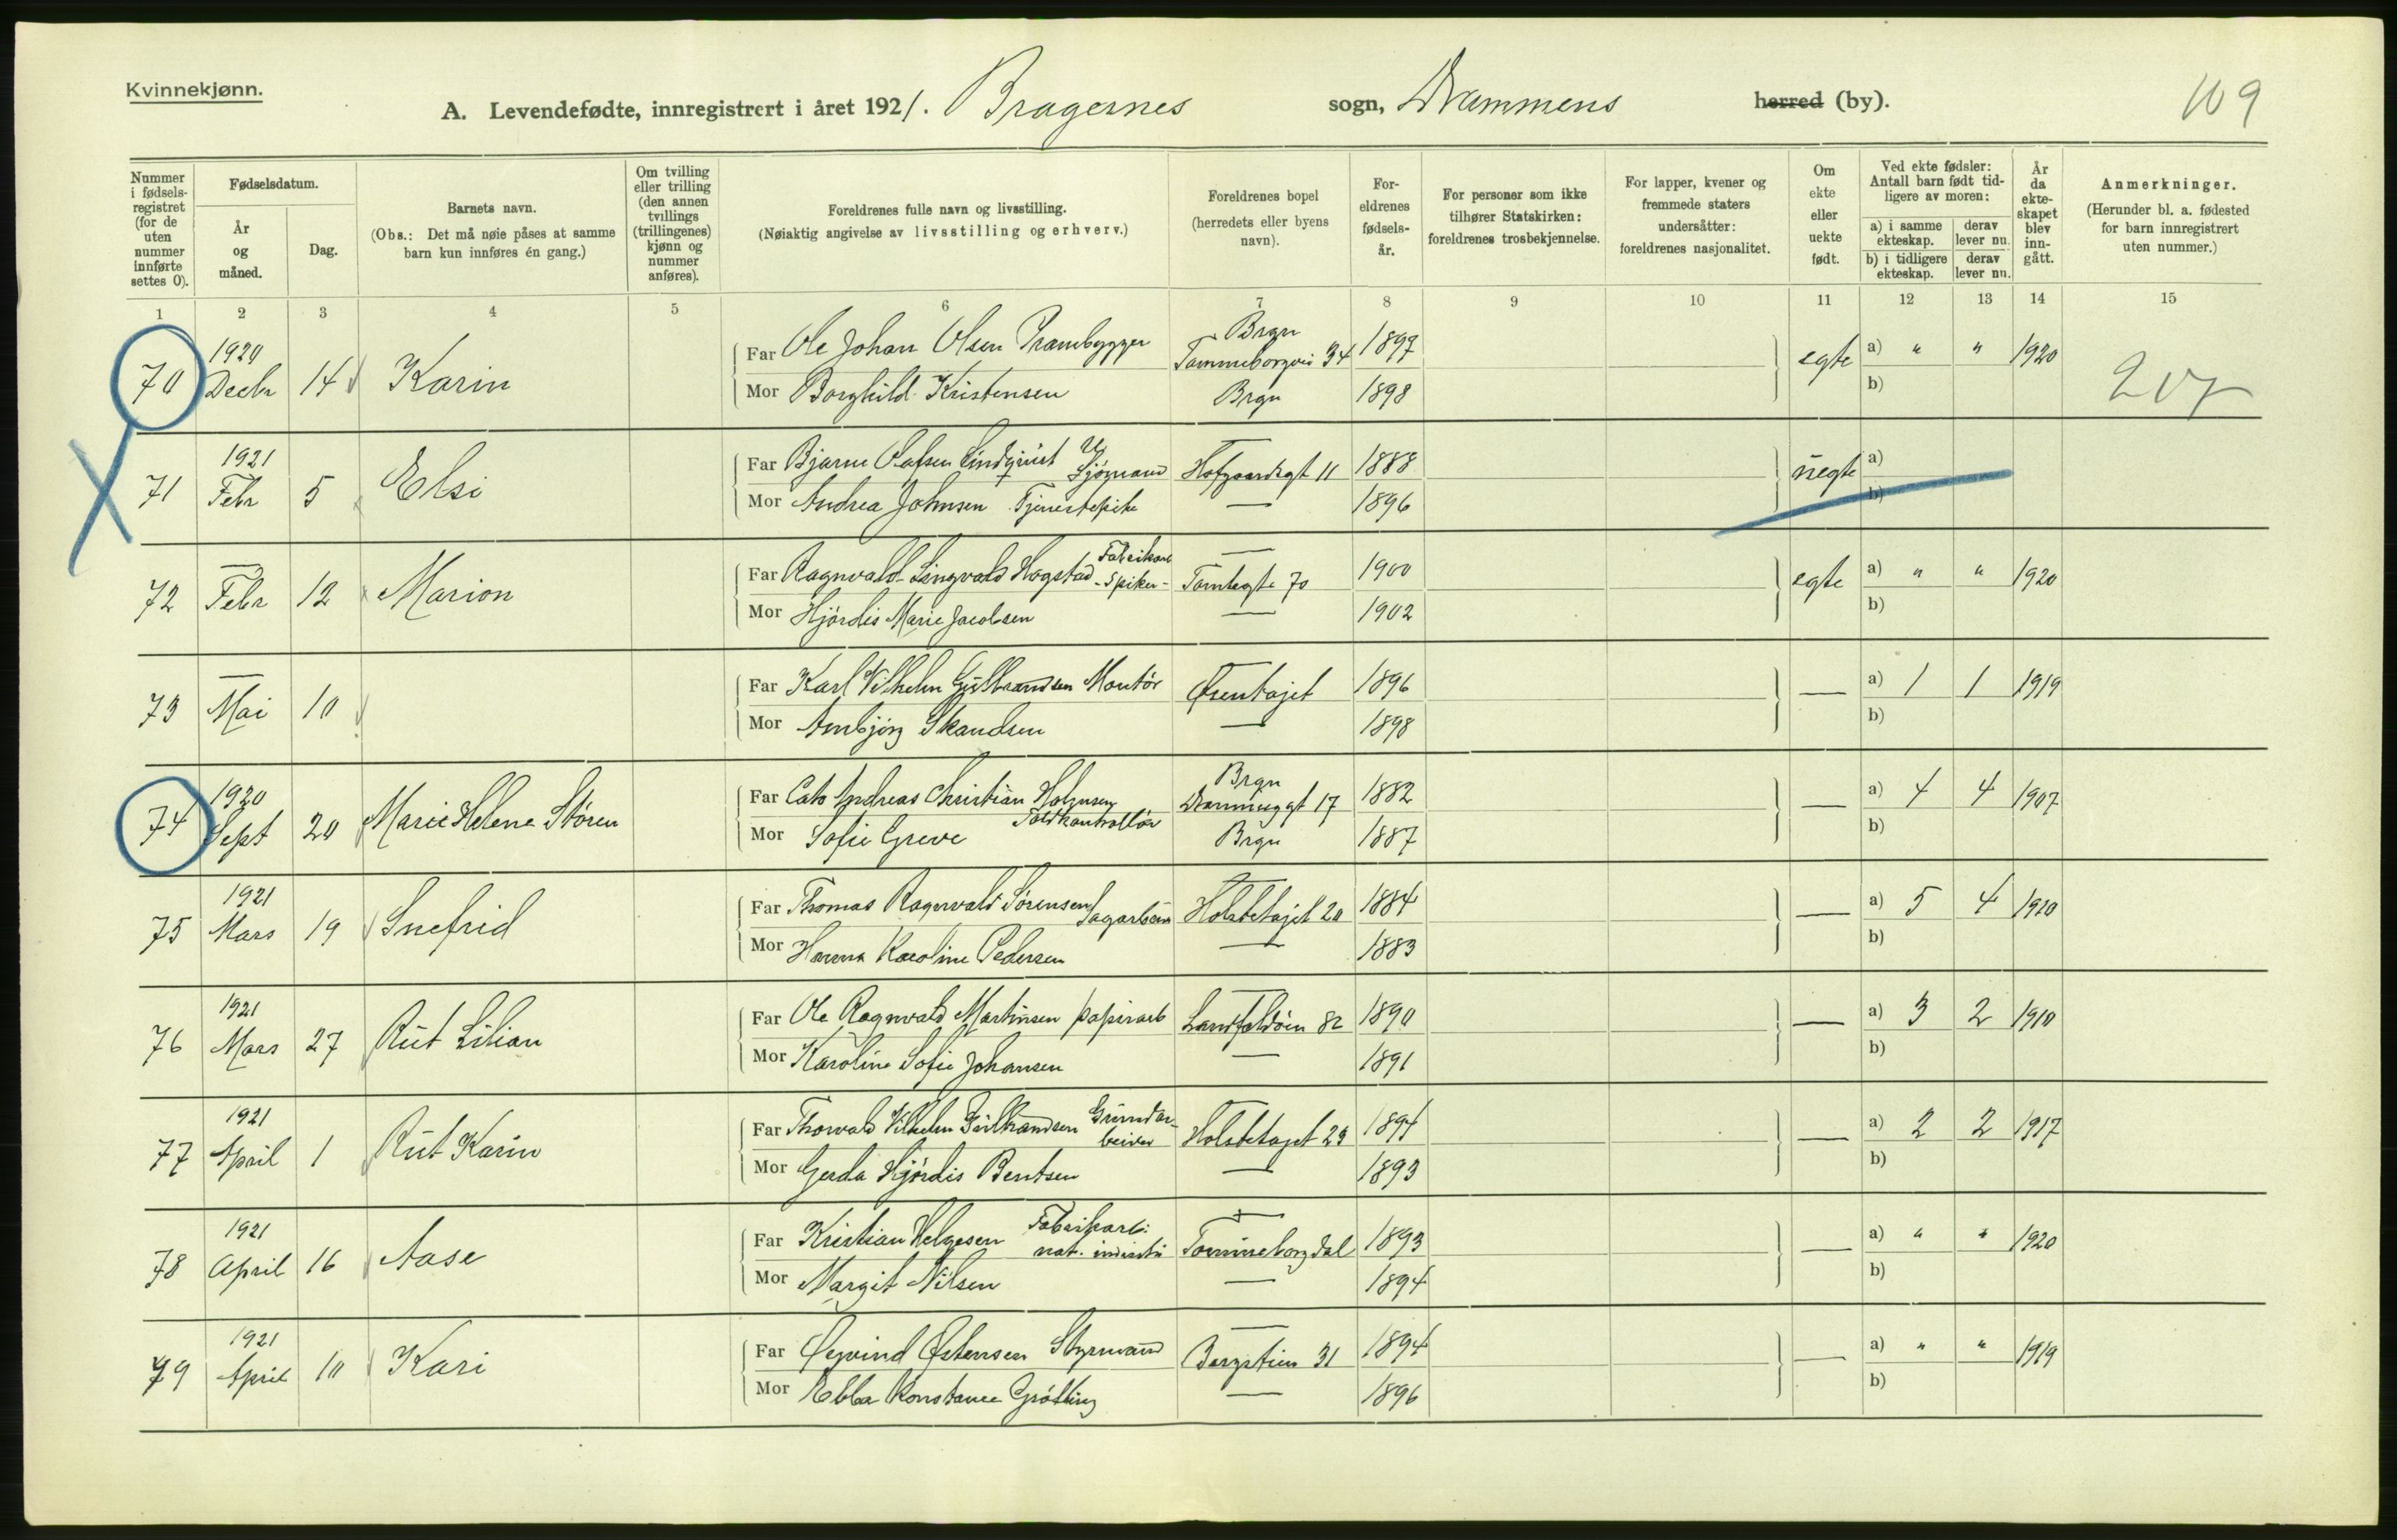 Kvinnekjønn.
A. Levendefødte, innregistrert i året 1921. Bragernes sogn, Drammens herred (by).
109
Nummer i fødselsregistret (for de uten nummer innførte settes 0).
Fødselsdatum.
År og måned.
Dag.
Barnets navn.
(Obs.: Det må nøie påses at samme barn kun innføres én gang.)
Om tvilling eller trilling (den annen tvillings (trillingenes) kjønn og nummer anføres).
Foreldrenes fulle navn og livsstilling.
(Nøiaktig angivelse av livsstilling og erhverv.)
Foreldrenes bopel (herredets eller byens navn).
Foreldrenes fødselsår.
For personer som ikke tilhører Statskirken: foreldrenes trosbekjennelse.
For lapper, kvener og fremmede staters undersåtter: foreldrenes nasjonalitet.
Om ekte eller uekte født.
Ved ekte fødsler: Antall barn født tidligere av moren:
a) i samme ekteskap.
derav lever nu.
b) i tidligere ekteskap.
derav lever nu.
År da ekteskapet blev inngått.
Anmerkninger.
(Herunder bl. a. fødested for barn innregistrert uten nummer.)
1 2 3 4 5 6 7 8 9 10 11 12 13 14 15
70 1920 Decbr 14 Karin
Far Ole Johan Olsen Prambygger Brgn Tømmeborgvei 34 1897 egte a) " " 1920
Mor Borghild Kristensen Brgn 1898 b)
207
71 1921 Febr 5 Elsi
Far Bjarne Olafsen Lindqvist U Sjømand Hofgaardsgt 11 1888 uegte a)
Mor Andrea Johnsen Tjenestepike — 1896 b)
72 — Febr 12 Marion
Far Ragnvald Lingvald Hogstad Fabrikarb - Spiker - — Tomtegte 70 1900 egte a) " " 1920
Mor Hjördis Marie Jacobsen — 1902 b)
73 — Mai 10
Far Karl Vilhelm Gulbrandsen Montör Ørentajet 1896 — a) 1 1 1919
Mor Anbjörg Skandsen — 1898 b)
74 1920 Sept 20 Marie Helene Støren
Far Cato Andreas Christian Holmsen Toldkontrollör Brgn Dronninggt 17 1882 — a) 4 4 1907
Mor Sofie Greve Brgn 1887 b)
75 1921 Mars 19 Snefrid
Far Thomas Ragnvald Sørensen Sagarbeid — Holstetajet 20 1884 — a) 5 4 1910
Mor Hanna Karoline Pedersen — 1883 b)
76 1921 Mars 27 Rut Lilian
Far Ole Ragnvald Martinsen papirarb — Landfaldöen 82 1890 — a) 3 2 1910
Mor Karoline Sofie Johansen — 1891 b)
77 1921 April 1 Rut Karin
Far Thorvald Vilhelm Gulbrandsen Grundarbeider — Holstetajet 23 1894 — a) 2 2 1917
Mor Gerda Hjördis Bentsen — 1893 b)
78 1921 April 16 Aase
Far Kristian Helgesen Fabrikarb: nat. industri — Tömmeborgdal 1893 — a) " " 1920
Mor Margit Nilsen — 1894 b)
79 1921 April 10 Kari
Far Øyvind Østensen Styrmand — Bergstien 31 1894 — a) " " 1919
Mor Ebba Konstance Grötting — 1896 b)